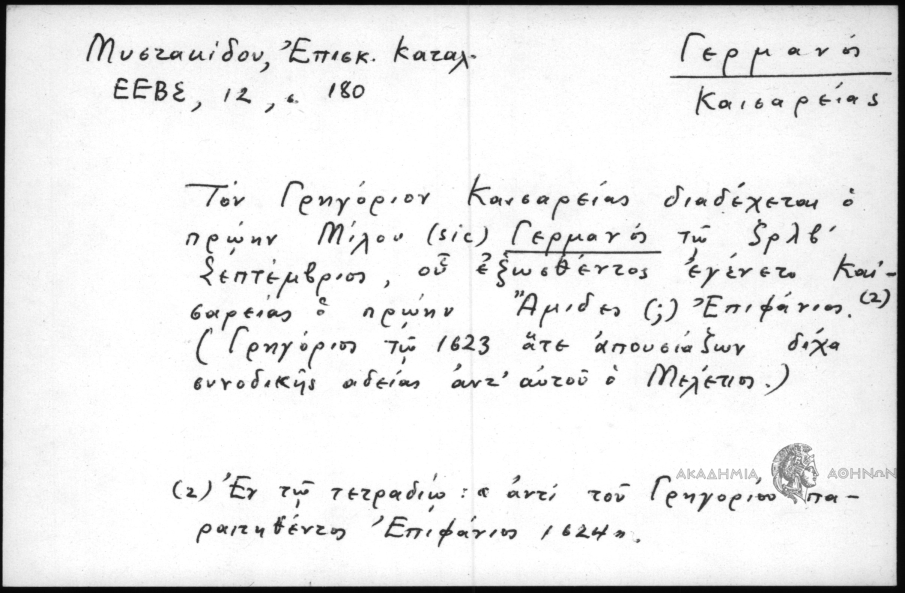 Μυστακίδου, Ἐπισκ. Καταλ.
Γερμανός
ΕΕΒΣ, 12, σ. 180
Καισαρείας
Τόν Γρηγόριον Καισαρείας διαδέχεται ὁ
πρώην Μίλου (sic) Γερμανός τῷ ζρλβ'
Σεπτέμβριος, οὗ ἐξωσθέντος ἐγένετο Και-
σαρείας ὁ πρώην Ἄμιδες (;) Ἐπιφάνιος. (2)
(Γρηγόριος τῷ 1623 ἅτε ἀπουσιάζων δίχα
συνοδικῆς αδείας ἀντ' αὐτοῦ ὁ Μελέτιος.)
ΑΚΑΔΗΜΙΑ ΑΘΗΝΩΝ
(2) Ἐν τῷ τετραδίῳ: «ἀντί τοῦ Γρηγορίου πα-
ραιτηθέντος Ἐπιφάνιος 1624».